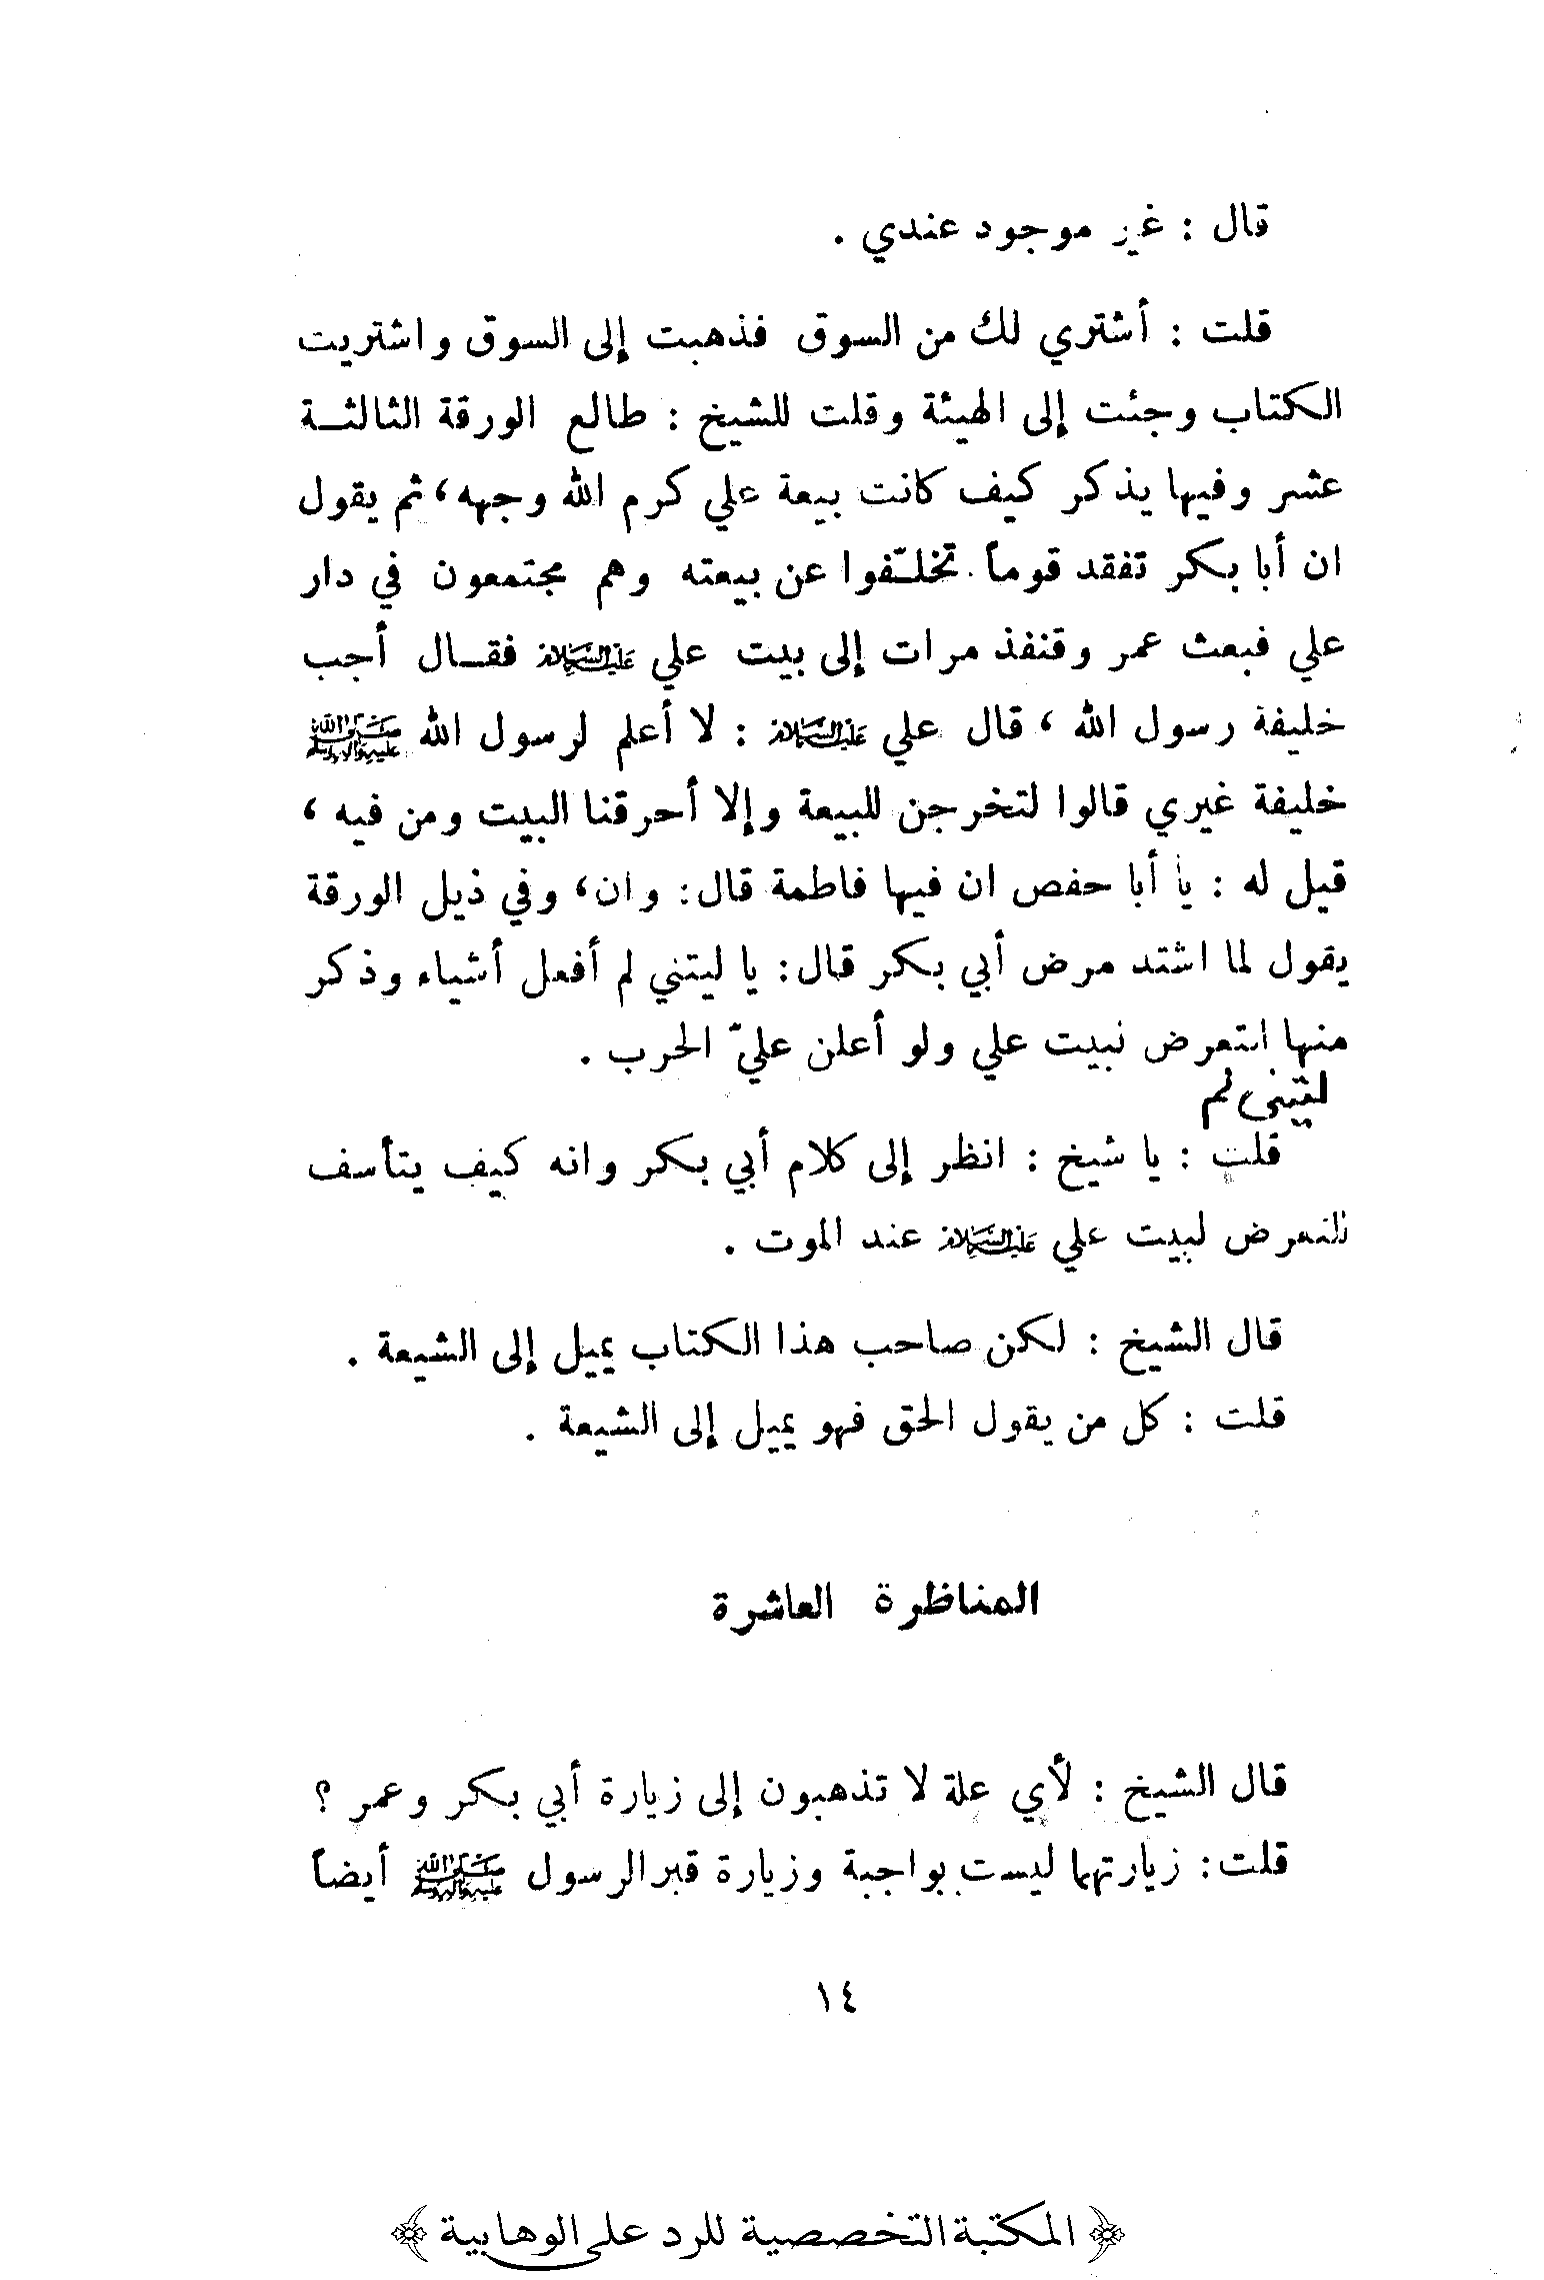 قال : غير موجود عندي .
قلت : أشتري لك من السوق فذهبت إلى السوق واشتريت
الكتاب وجئت إلى الهيئة وقلت للشيخ : طالع الورقة الثالثـة
عشر وفيها يذكر كيف كانت بيعة علي كرم الله وجهه، ثم يقول
ان أبا بكر تفقد قوماً تخلـّفوا عن بيعته وهم مجتمعون في دار
علي فبعث عمر وقنفذ مرات إلى بيت علي عليه السلام فقـال أجب
خليفة رسول الله ، قال علي عليه السلام : لا أعلم لرسول الله صلى الله عليه وآله وسلم
خليفة غيري قالوا لتخرجن للبيعة وإلا أحرقنا البيت ومن فيه ،
قيل له : يا أبا حفص ان فيها فاطمة قال: وان، وفي ذيل الورقة
يقول لما اشتد مرض أبي بكر قال: يا ليتني لم أفعل أشياء وذكر
منها التعرض لبيت علي ولو أعلن عليّ الحرب .
ليتني لم
قلت : يا شيخ : انظر إلى كلام أبي بكر وانه كيف يتأسف
للتعرض لبيت علي عليه السلام عند الموت .
قال الشيخ : لكن صاحب هذا الكتاب يميل إلى الشيعة .
قلت : كل من يقول الحق فهو يميل إلى الشيعة .
المناظرة العاشرة
قال الشيخ : لأي علة لا تذهبون إلى زيارة أبي بكر وعمر ؟
قلت: زيارتهما ليست بواجبة وزيارة قبر الرسول صلى الله عليه وآله وسلم أيضاً
١٤
﴿ المكتبة التخصصية للرد على الوهابية ﴾